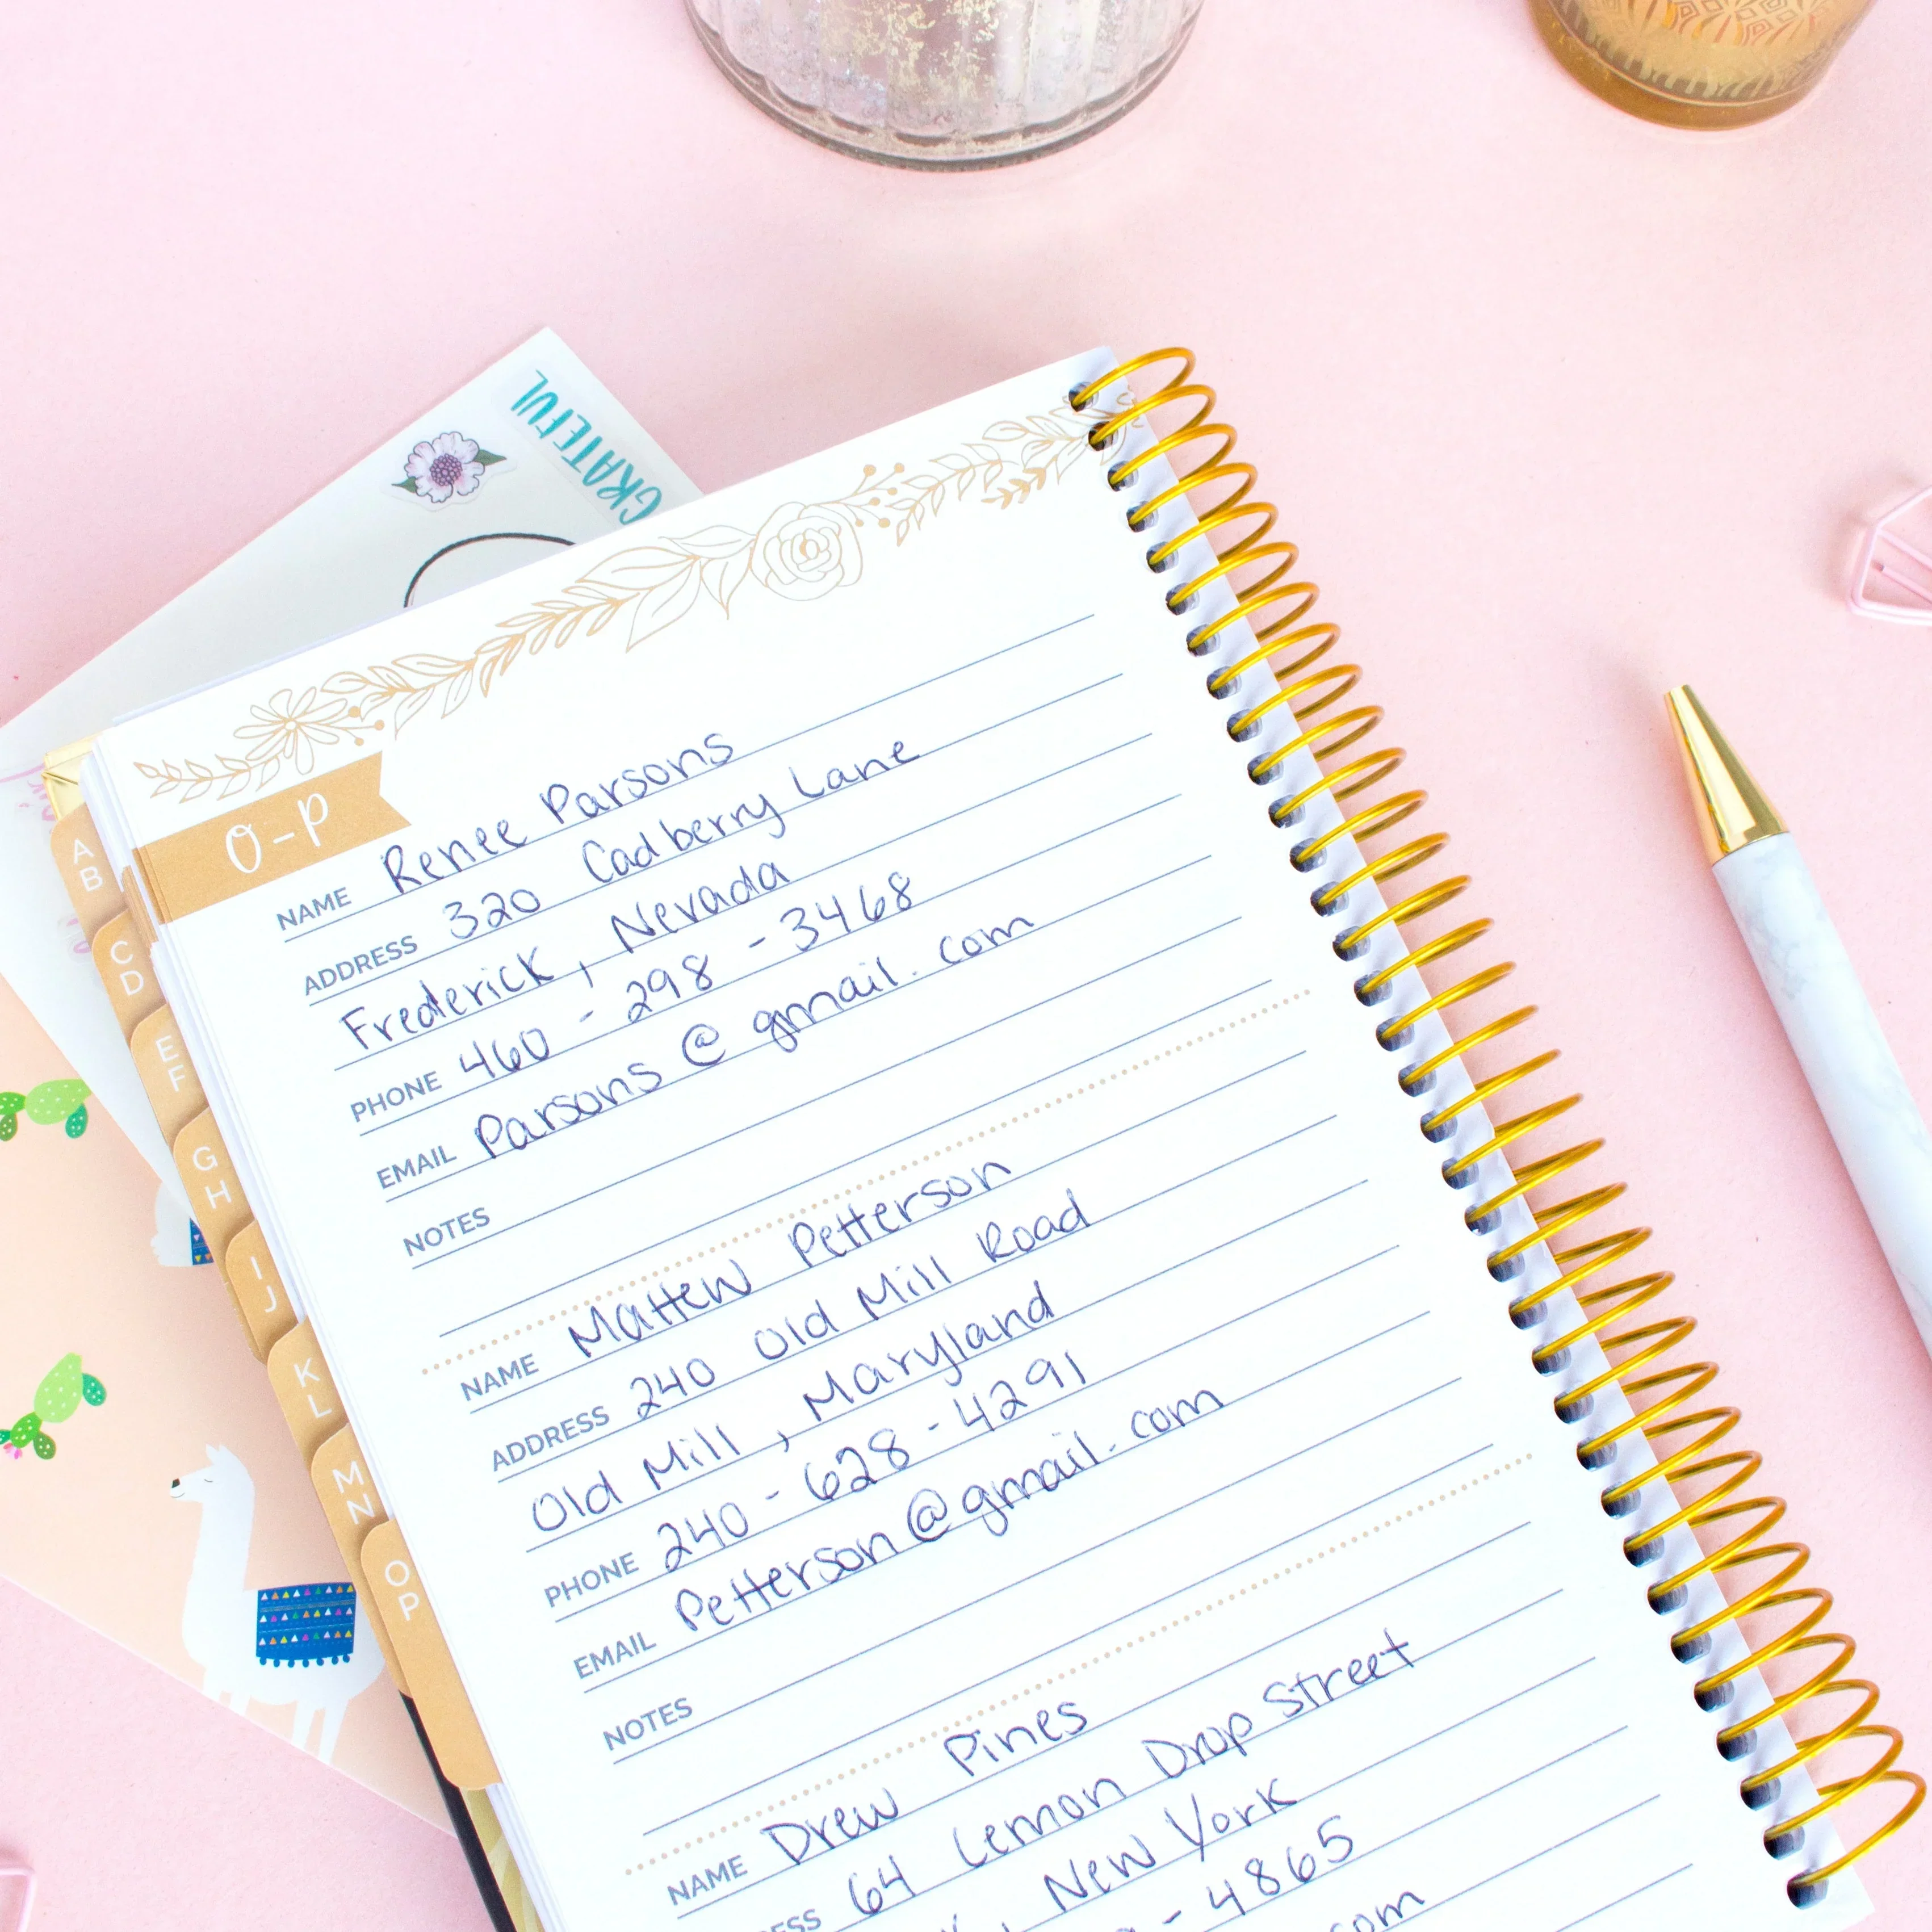 GRATEFUL
O-P
NAME Renee Parsons
ADDRESS 320 Cadberry Lane
Frederick, Nevada
PHONE 460-298-3468
EMAIL Parsons@gmail.com
NOTES
NAME Mattew Petterson
ADDRESS 240 Old Mill Road
Old Mill, Maryland
PHONE 240-628-4291
EMAIL Petterson@gmail.com
NOTES
NAME Drew Pines
64 Lemon Drop Street
, New York
- 4865
com
A
B
C
D
E
F
G
H
I
J
K
L
M
N
O
P